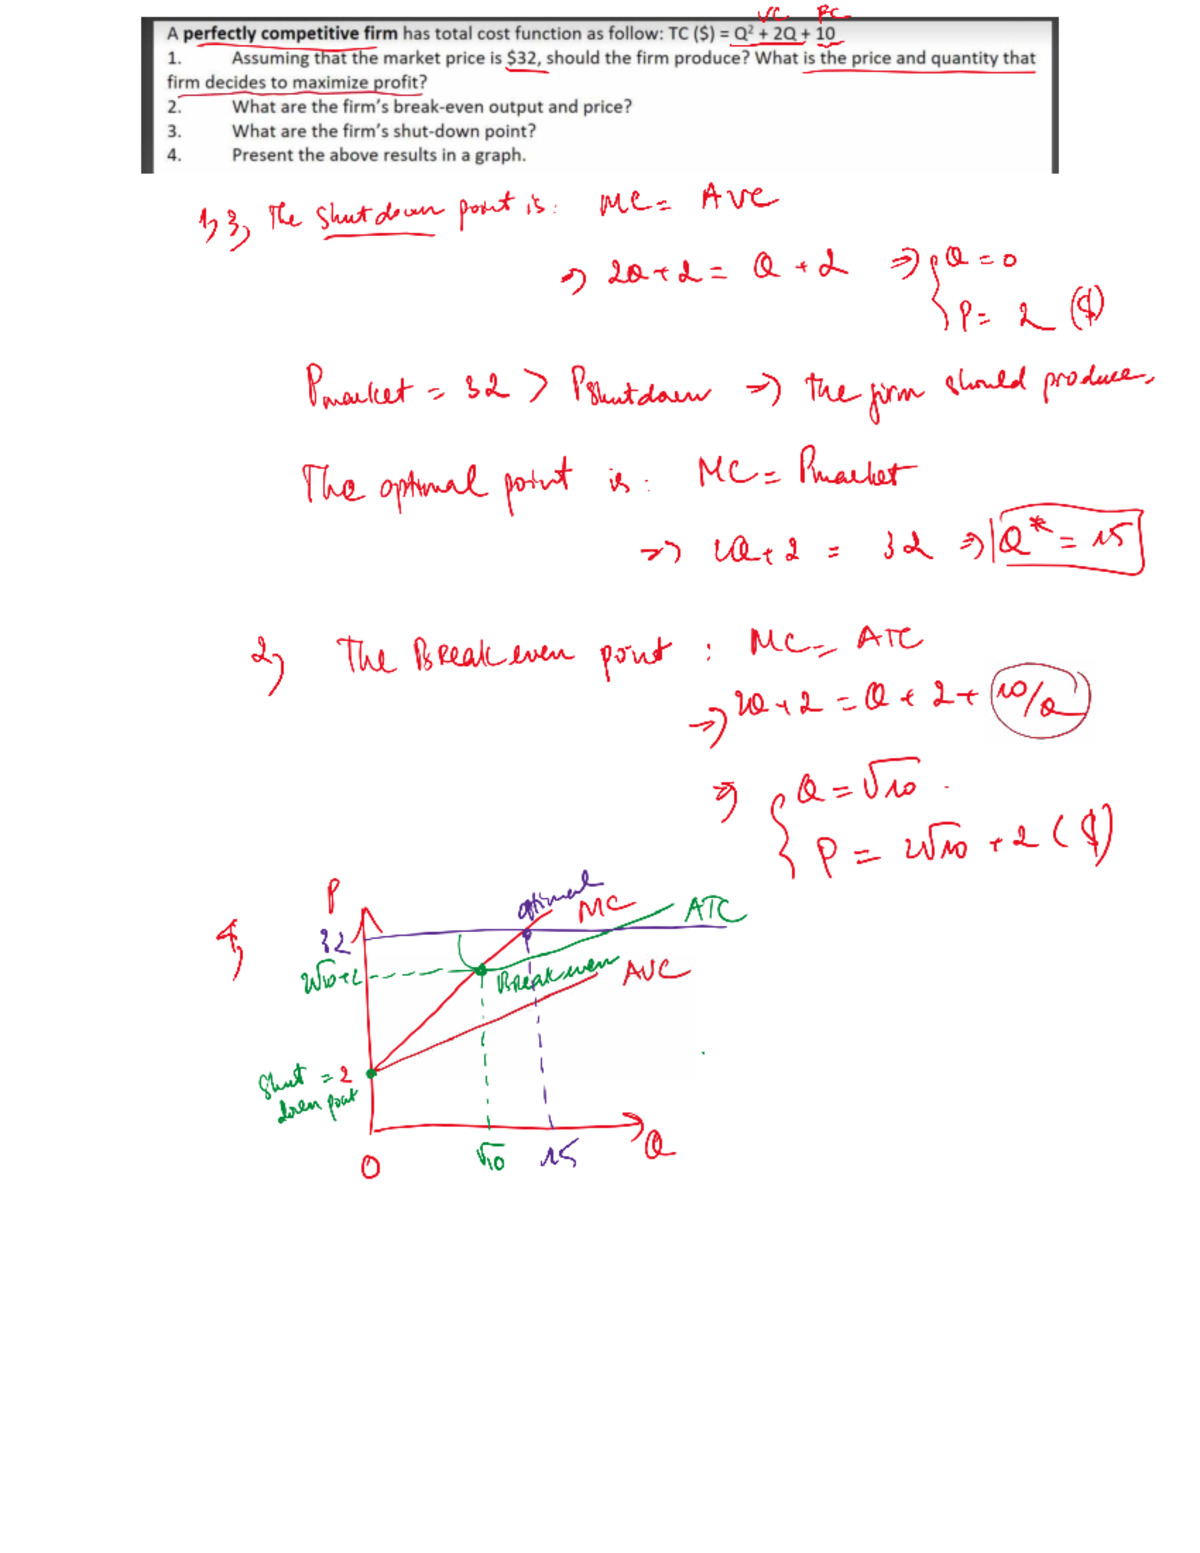 VC FC
A perfectly competitive firm has total cost function as follow: TC ($) = Q² + 2Q + 10
1. Assuming that the market price is $32, should the firm produce? What is the price and quantity that
firm decides to maximize profit?
2. What are the firm's break-even output and price?
3. What are the firm's shut-down point?
4. Present the above results in a graph.
1, 3, The Shutdown point is: MC = AVC
=> 2Q + 2 = Q + 2 => { Q = 0
P = 2 ($)
Pmarket = 32 > Pshutdown => the firm should produce.
The optimal point is: MC = Pmarket
=> 2Q + 2 = 32 => Q* = 15
2, The Break even point: MC = ATC
=> 2Q + 2 = Q + 2 + 10/Q
=> { Q = √10.
P = 2√10 + 2 ($)
4,
P
optimal
MC
ATC
32
2√10+2
Break even
AVC
Shut = 2
down point
0
√10
15
Q